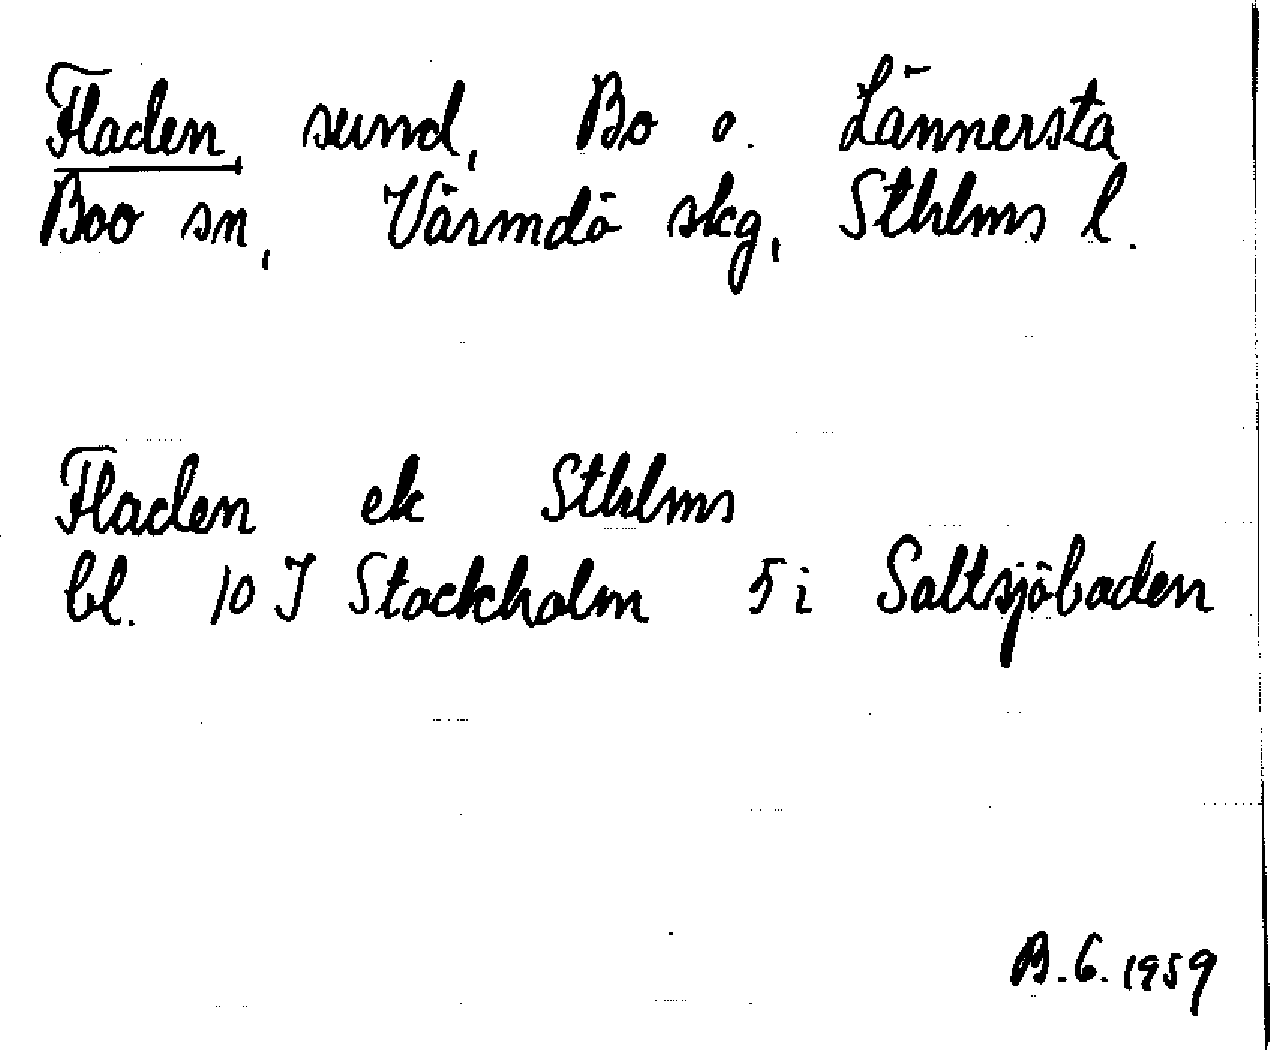 Fladen, sund, Bo o. Lännersta
Boo sn, Värmdö skg, Sthlms l.
Fladen ek Sthlms
bl. 10 I Stockholm 5 i Saltsjöbaden
B.G. 1959